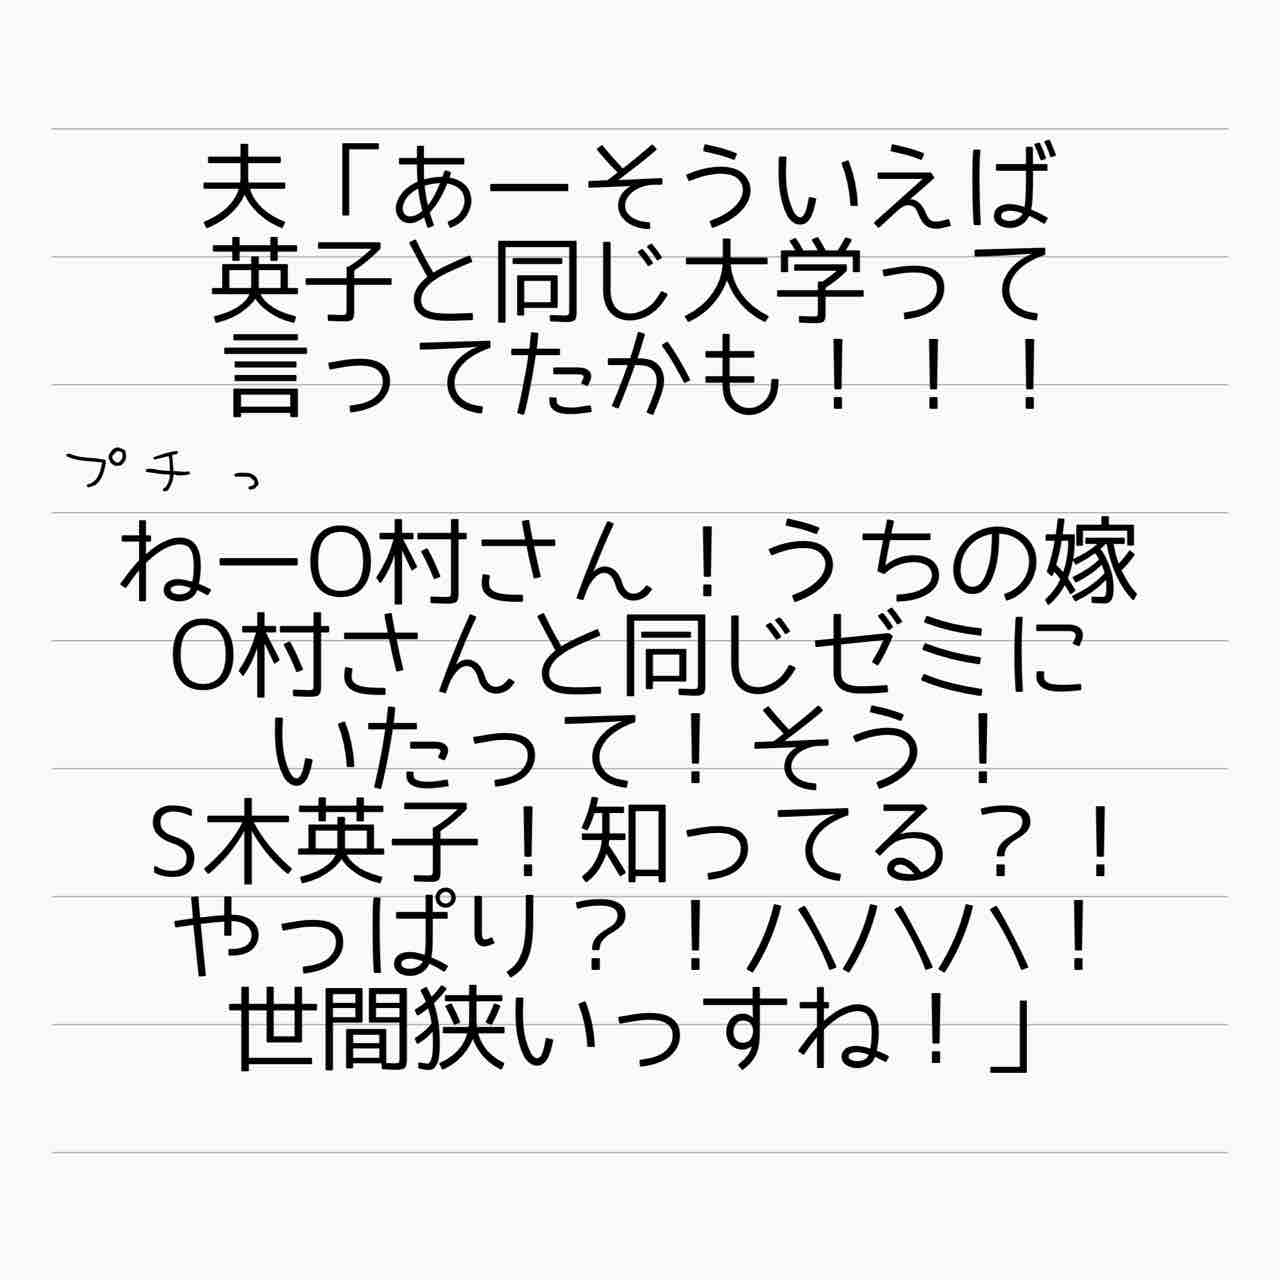 夫「あーそういえば
英子と同じ大学って
言ってたかも！！！
プチっ
ねーO村さん！うちの嫁
O村さんと同じゼミに
いたって！そう！
S木英子！知ってる？！
やっぱり？！ハハハ！
世間狭いっすね！」